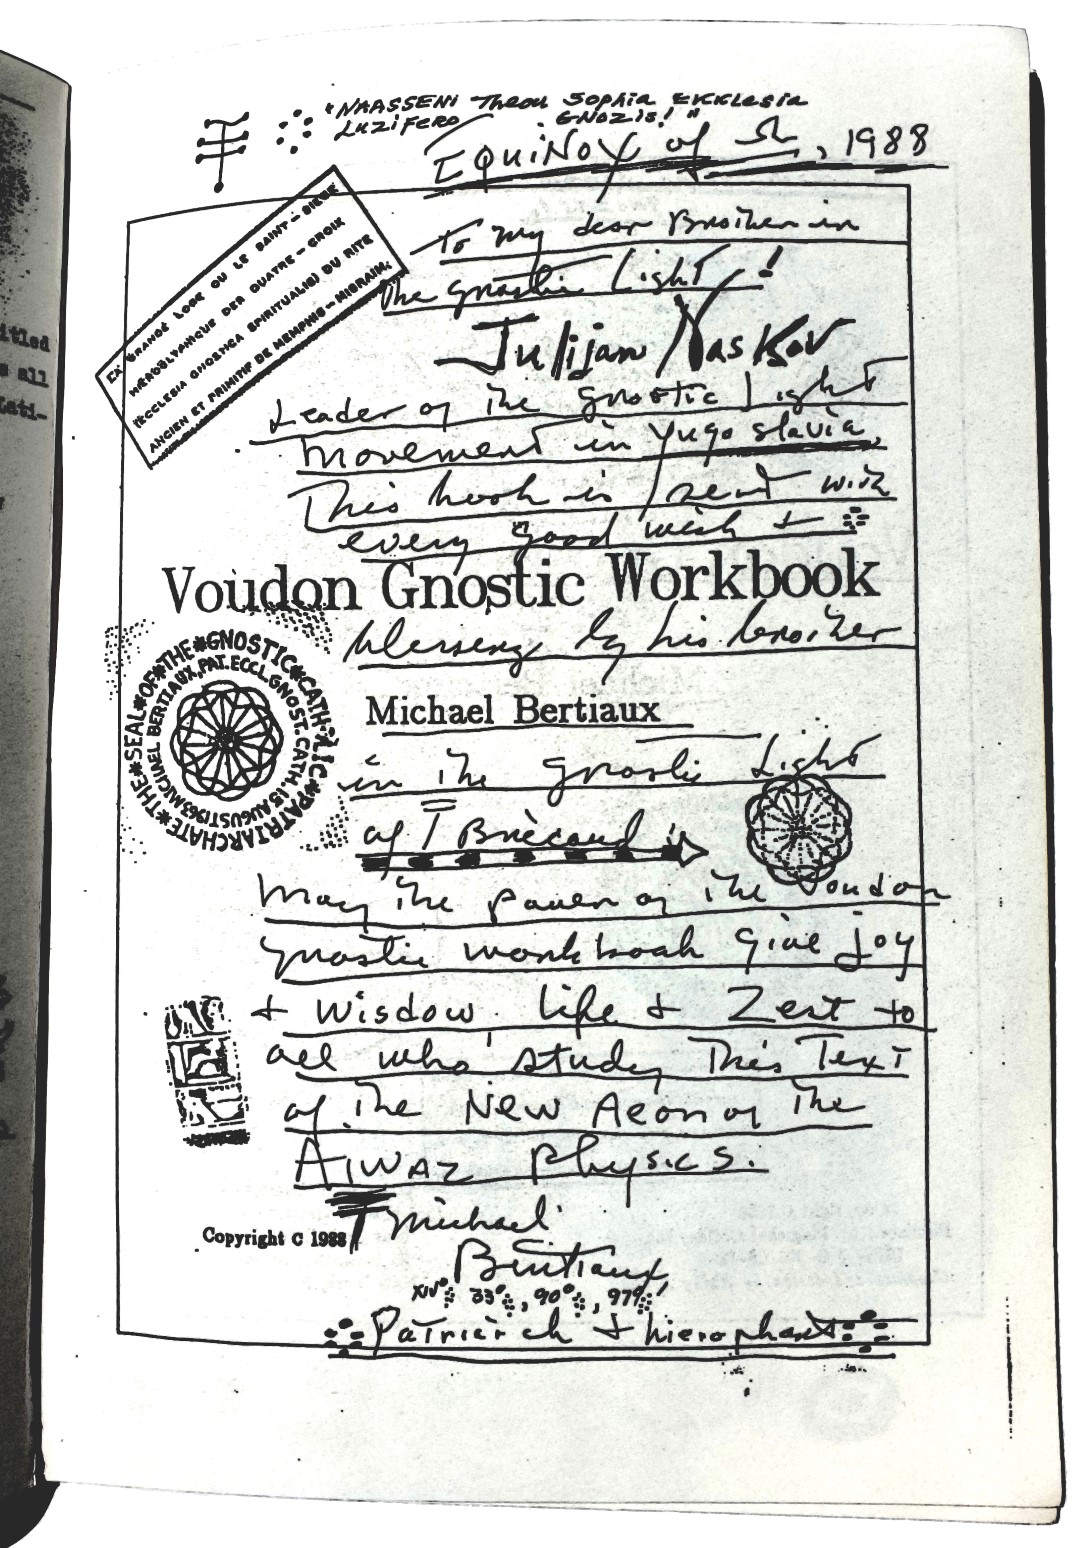 "NAASSENI Theou Sophia Ekklesia
LUZIFERO GNOZIS!"
EQUINOX of ♎, 1988
LA GRANDE LOGE OU LE SAINT-SIEGE
MEROVLYANIQUE DER QUATRE-CROIX
(ECCLESIA GNOSTICA SPIRITUALIS) DU RITE
ANCIEN ET PRIMITIF DE MEMPHIS-MISRAIM.
To my dear Brother in
the gnostic Light!
Julijan Naskov
Leader of the gnostic Light
movement in Yugoslavia.
This book is sent with
every good wish +
Voudon Gnostic Workbook
blessing by his brother
THE*SEAL*OF*THE*GNOSTIC*CATHOLIC*PATRIARCHATE*
MICHAEL BERTIAUX, PAT. ECCL. GNOST. CATH. 15 AUGUST 1963
Michael Bertiaux
in the gnostic Light
of
May the power of the Voudon
gnostic workbook give joy
+ wisdom, life + Zest to
all who study This Text
of the New Aeon of the
AIWAZ Physics.
Copyright C 1988
T Michael
Bertiaux,
XIV°, 33°, 90°, 97°,
Patriarch + hierophant
itled
s all